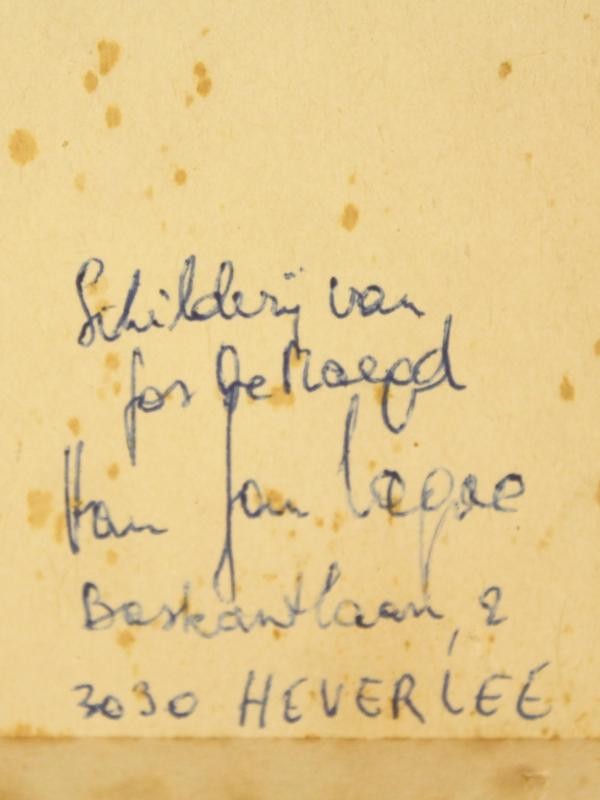 Schilderij van
Jos De Maegd
Van Jan
Boskantlaan, 2
3030 HEVERLEE